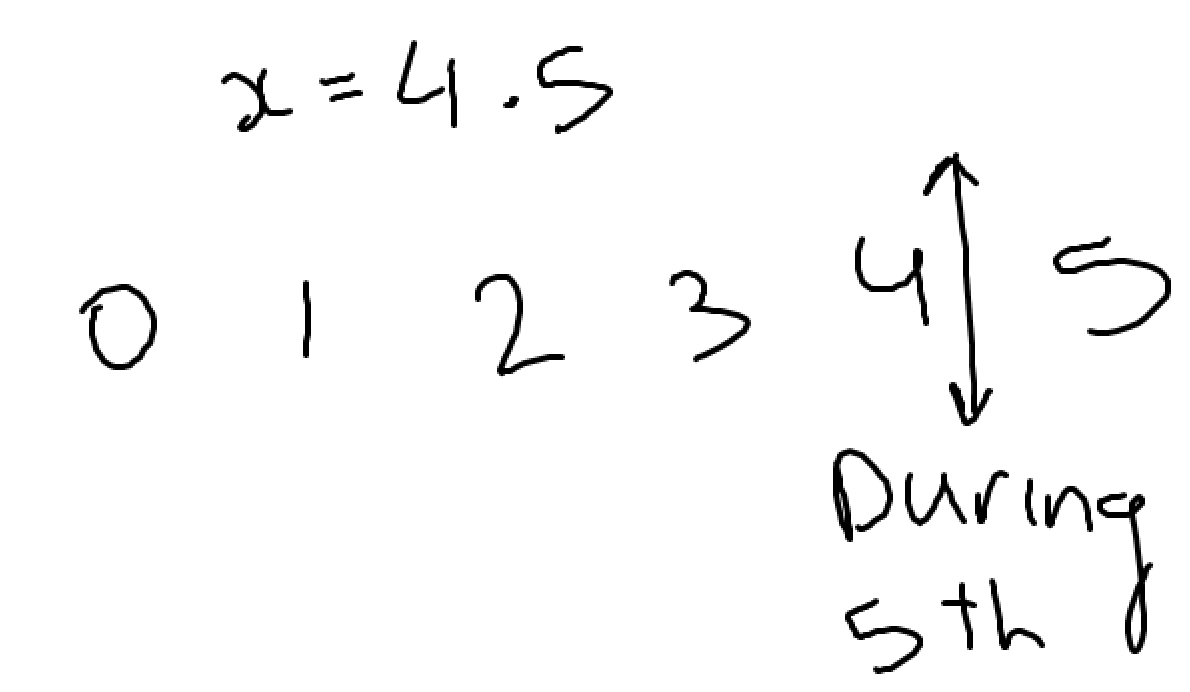 x = 4.5
0 1 2 3 4 5
During
5th